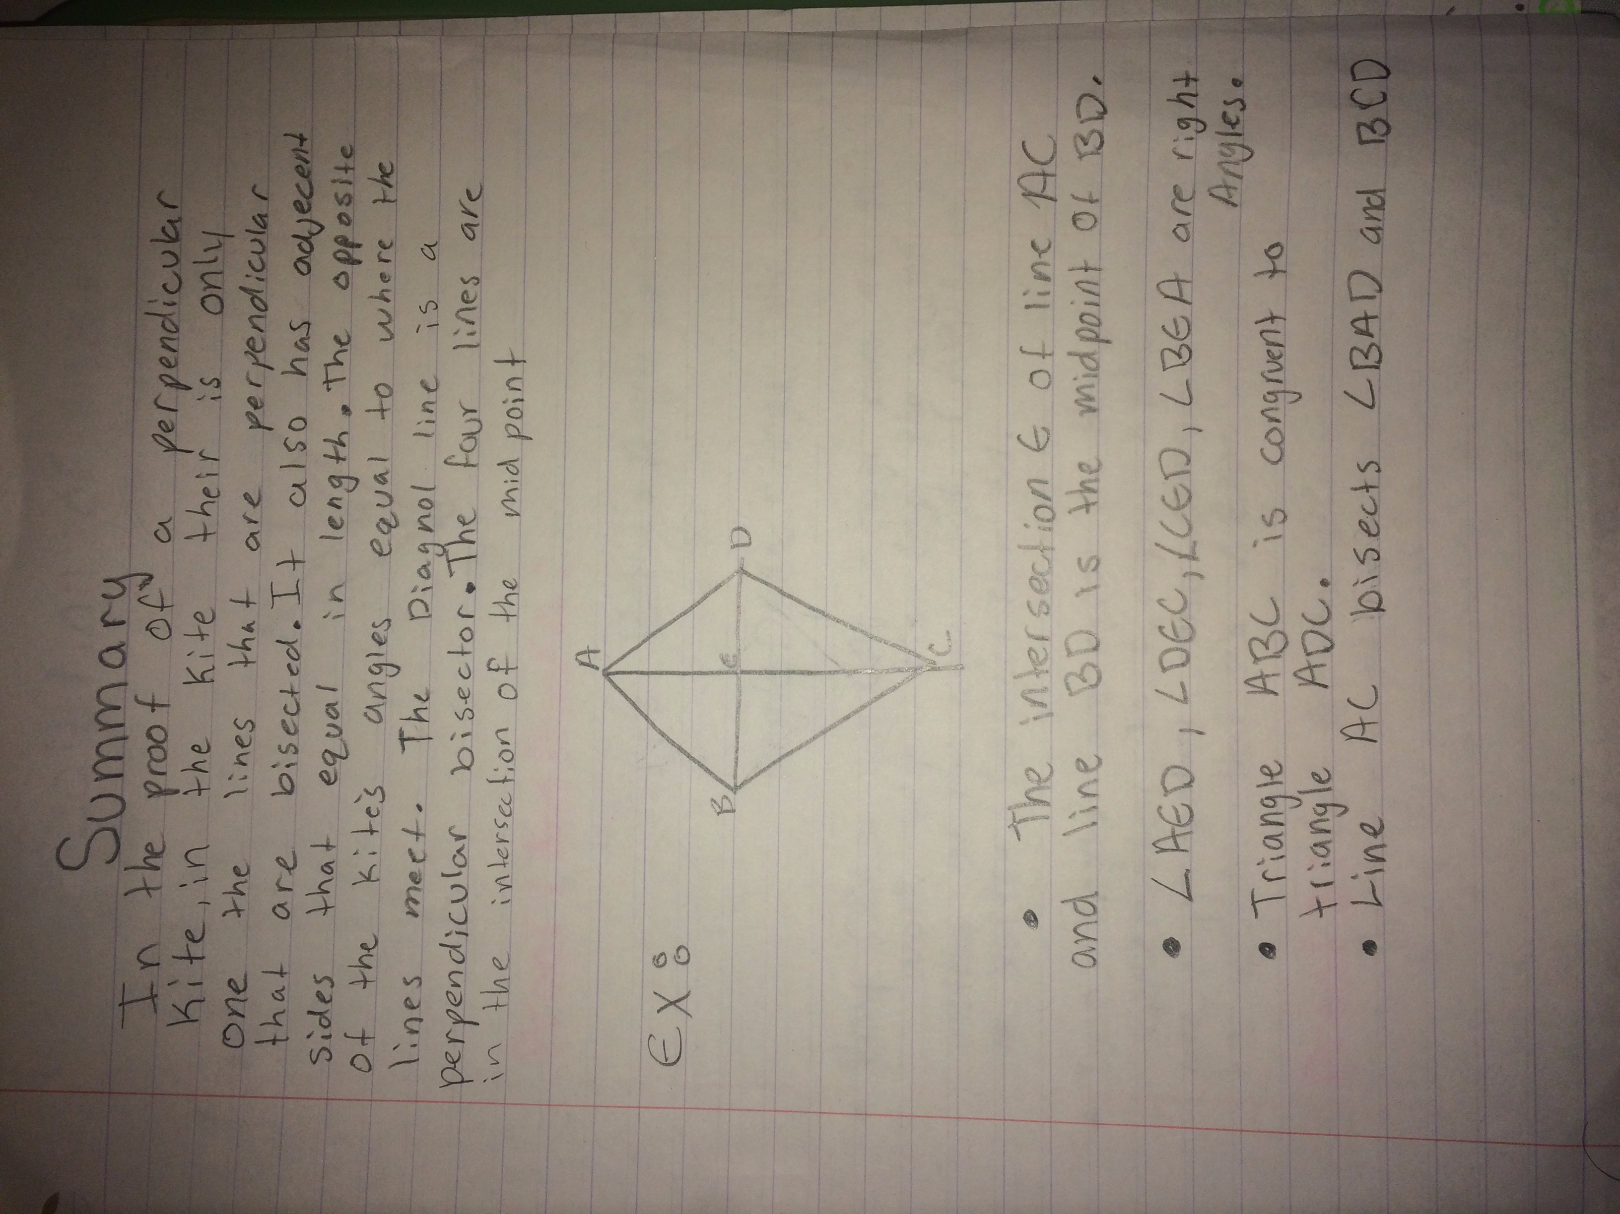 Summary
In the proof of a perpendicular
Kite, in the kite their is only
one the lines that are perpendicular
that are bisected. It also has adjecent
sides that equal in length. The opposite
of the kite's angles equal to where the
lines meet. The Diagnol line is a
perpendicular bisector. The four lines are
in the intersection of the mid point
Ex:
A
B
E
D
C
• The intersection E of line AC
and line BD is the midpoint of BD.
• ∠AED, ∠DEC, ∠CED, ∠BEA are right
Angles.
• Triangle ABC is congruent to
triangle ADC.
• Line AC bisects ∠BAD and BCD